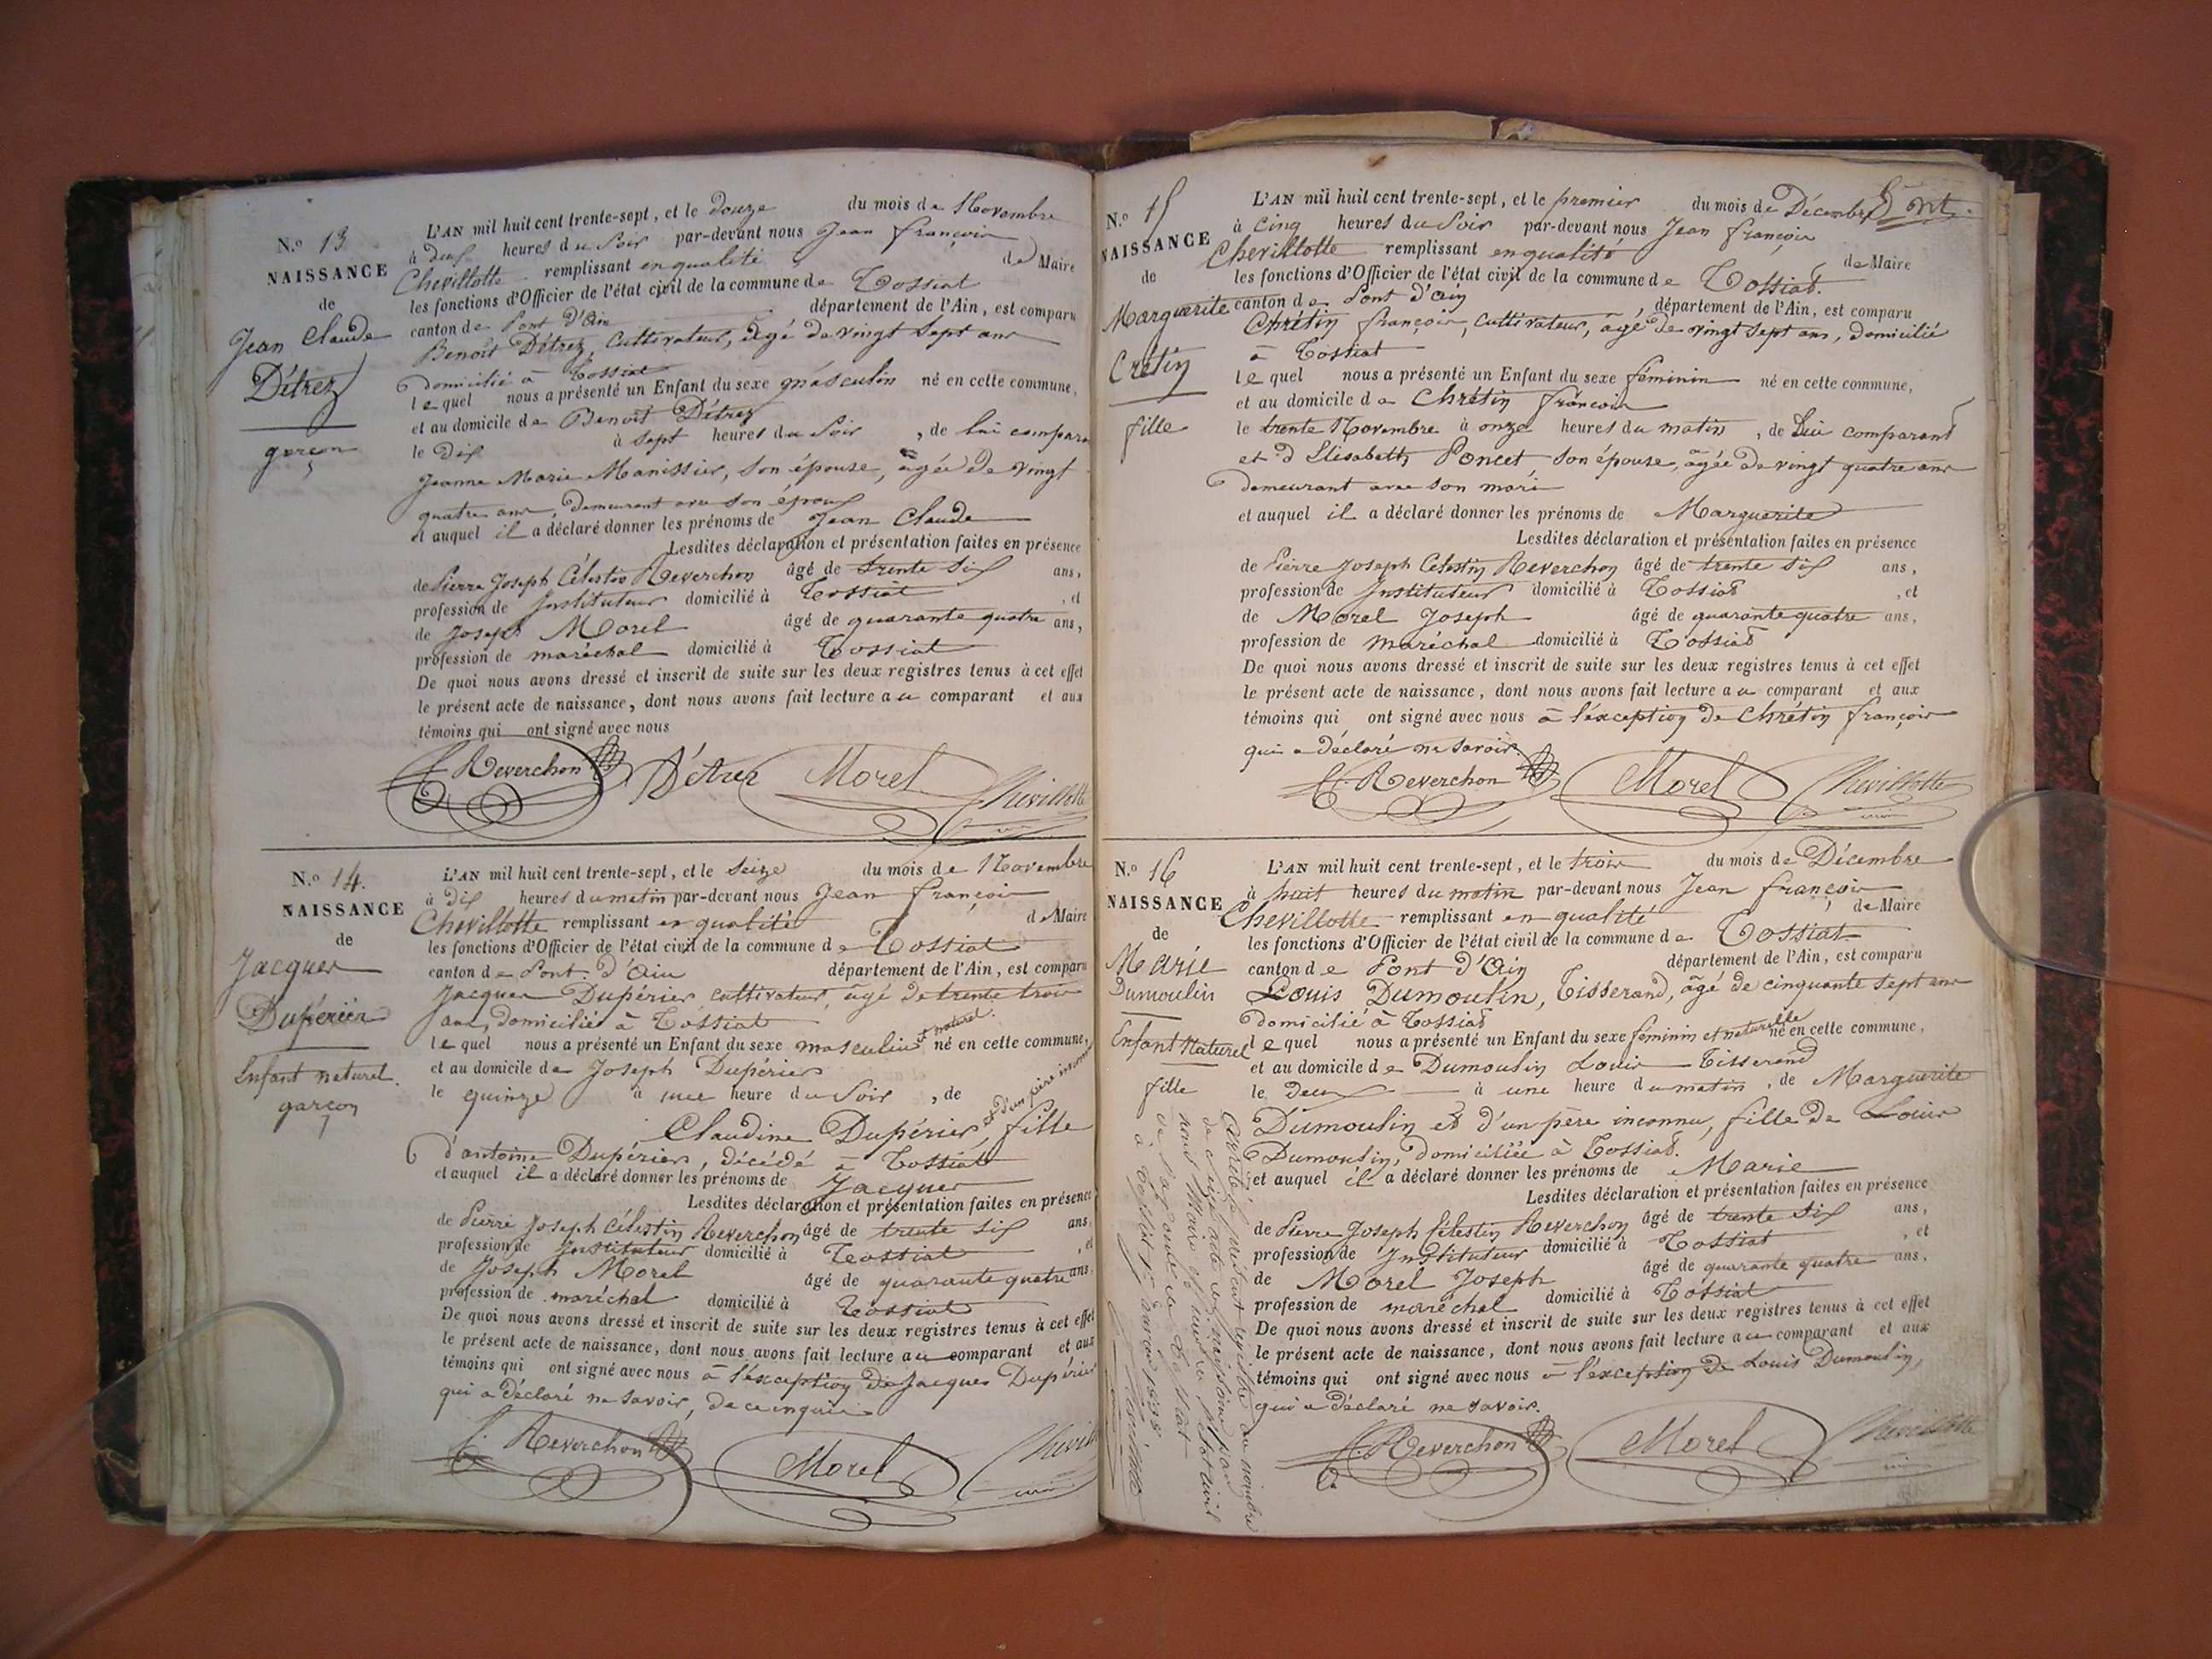 N.o 13
NAISSANCE
de
Jean Claude
Détrez
garçon
L'AN mil huit cent trente-sept, et le douze du mois de Novembre
à deux heures du Soir par-devant nous Jean françois
Chevillotte remplissant en qualité de Maire
les fonctions d'Officier de l'état civil de la commune de Tossiat
canton de Pont d'Ain département de l'Ain, est comparu
Benoît Détrez, Cultivateur, âgé de vingt sept ans
domicilié à Tossiat
lequel nous a présenté un Enfant du sexe masculin né en cette commune,
et au domicile de Benoît Détrez
le dix à sept heures du Soir, de lui comparant
Jeanne Marie Manissier, son épouse, âgée de vingt
quatre ans, demeurant avec son époux
et auquel il a déclaré donner les prénoms de Jean Claude
Lesdites déclaration et présentation faites en présence
de Pierre Joseph Célestin Reverchon âgé de trente six ans,
profession de Instituteur domicilié à Tossiat, et
de Joseph Morel âgé de quarante quatre ans,
profession de maréchal domicilié à Tossiat
De quoi nous avons dressé et inscrit de suite sur les deux registres tenus à cet effet
le présent acte de naissance, dont nous avons fait lecture au comparant et aux
témoins qui ont signé avec nous
Reverchon Détrez Morel Chevillotte
N.o 14.
NAISSANCE
de
Jacques
Dupérier
Enfant naturel.
garçon
L'AN mil huit cent trente-sept, et le Seize du mois de Novembre
à dix heures du matin par-devant nous Jean françois
Chevillotte remplissant en qualité de Maire
les fonctions d'Officier de l'état civil de la commune de Tossiat
canton de Pont d'Ain département de l'Ain, est comparu
Jacques Dupérier cultivateur, âgé de trente trois
ans, domicilié à Tossiat
lequel nous a présenté un Enfant du sexe masculin et naturel. né en cette commune,
et au domicile de Joseph Dupérier
le quinze à une heure du Soir, de
Claudine Dupérier, et d'un père inconnu fille
d'antoine Dupérier, décédé à Tossiat
et auquel il a déclaré donner les prénoms de Jacques
Lesdites déclaration et présentation faites en présence
de Pierre Joseph Célestin Reverchon âgé de trente six ans,
profession de Instituteur domicilié à Tossiat, et
de Joseph Morel âgé de quarante quatre ans
profession de maréchal domicilié à Tossiat
De quoi nous avons dressé et inscrit de suite sur les deux registres tenus à cet effet
le présent acte de naissance, dont nous avons fait lecture au comparant et aux
témoins qui ont signé avec nous à l'exception de Jacques Dupérier
qui a déclaré ne savoir, de ce enquis
Reverchon Morel
N.o 15
NAISSANCE
de
Marguerite
Crétin
fille
L'AN mil huit cent trente-sept, et le premier du mois de Décembre
à Cinq heures du Soir par-devant nous Jean françois
Chevillotte remplissant en qualité de Maire
les fonctions d'Officier de l'état civil de la commune de Tossiat.
canton de Pont d'Ain, département de l'Ain, est comparu
Chrétin françois, cultivateur, âgé de vingt sept ans, domicilié
à Tossiat
lequel nous a présenté un Enfant du sexe féminin né en cette commune,
et au domicile de Chrétin françois
le trente Novembre à onze heures du matin, de lui comparant
et d'Elisabeth Poncet son épouse, âgée de vingt quatre ans
demeurant avec son mari
et auquel il a déclaré donner les prénoms de Marguerite
Lesdites déclaration et présentation faites en présence
de Pierre Joseph Célestin Reverchon âgé de trente six ans,
profession de Instituteur domicilié à Tossiat, et
de Morel Joseph âgé de quarante quatre ans,
profession de maréchal domicilié à Tossiat
De quoi nous avons dressé et inscrit de suite sur les deux registres tenus à cet effet
le présent acte de naissance, dont nous avons fait lecture au comparant et aux
témoins qui ont signé avec nous à l'exception de Chrétin françois
qui a déclaré ne savoir
Reverchon Morel Chevillotte
N.o 16
NAISSANCE
de
Marie
Dumoulin
Enfant Naturel
fille
L'AN mil huit cent trente-sept, et le trois du mois de Décembre
à huit heures du matin par-devant nous Jean françois
Chevillotte remplissant en qualité de Maire
les fonctions d'Officier de l'état civil de la commune de Tossiat
canton de Pont d'Ain département de l'Ain, est comparu
Louis Dumoulin, Tisserand, âgé de cinquante sept ans
domicilié à Tossiat
lequel nous a présenté un Enfant du sexe féminin et naturelle né en cette commune,
et au domicile de Dumoulin Louis Tisserand
le Deux à une heure du matin, de Marguerite
Dumoulin et d'un père inconnu, fille de Louis
Dumoulin, domiciliée à Tossiat.
et auquel il a déclaré donner les prénoms de Marie
Lesdites déclaration et présentation faites en présence
de Pierre Joseph Célestin Reverchon âgé de trente six ans,
profession de Instituteur domicilié à Tossiat, et
de Morel Joseph âgé de quarante quatre ans,
profession de maréchal domicilié à Tossiat
De quoi nous avons dressé et inscrit de suite sur les deux registres tenus à cet effet
le présent acte de naissance, dont nous avons fait lecture au comparant et aux
témoins qui ont signé avec nous à l'exception de Louis Dumoulin,
qui a déclaré ne savoir.
Reverchon Morel Chevillotte
Arrêté le présent registre au nombre
de Seize actes de naissance par
nous Maire et officier de l'état civil
de la commune de Tossiat
à Tossiat